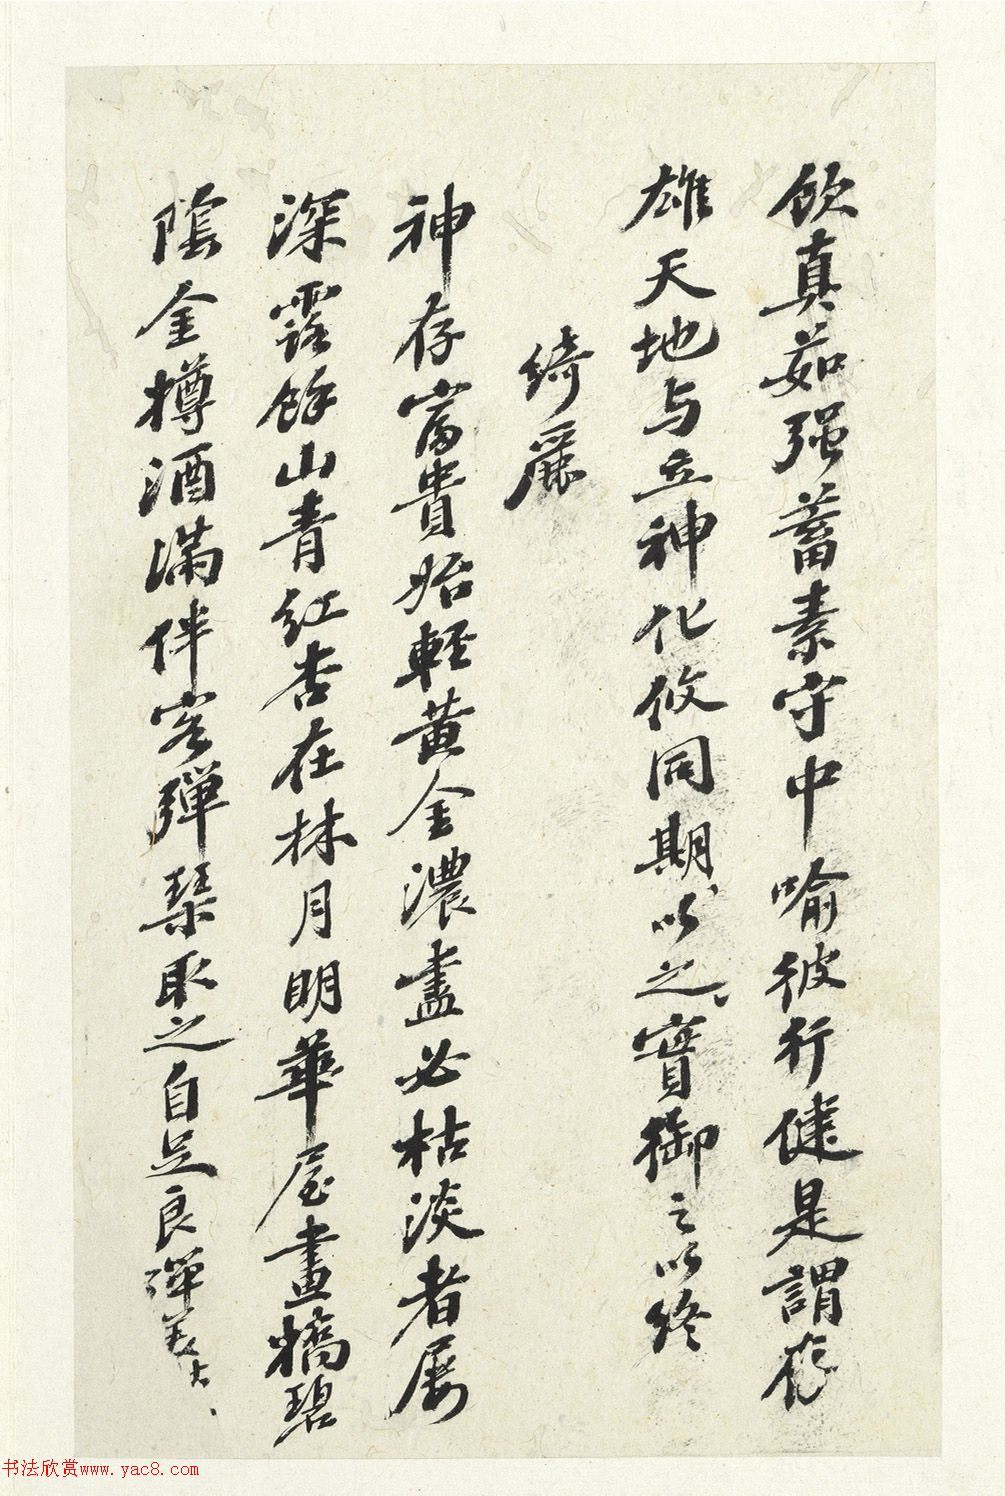 飲真茹强蓄素守中喻彼行健是謂存
雄天地与立神化攸同期以之實御之以終
綺麗
神存富貴始輕黄金濃盡必枯淡者屢
深露餘山青紅杏在林月明華屋畫橋碧
陰金樽酒滿伴客彈琴取之自足良彈美
书法欣赏www.yac8.com